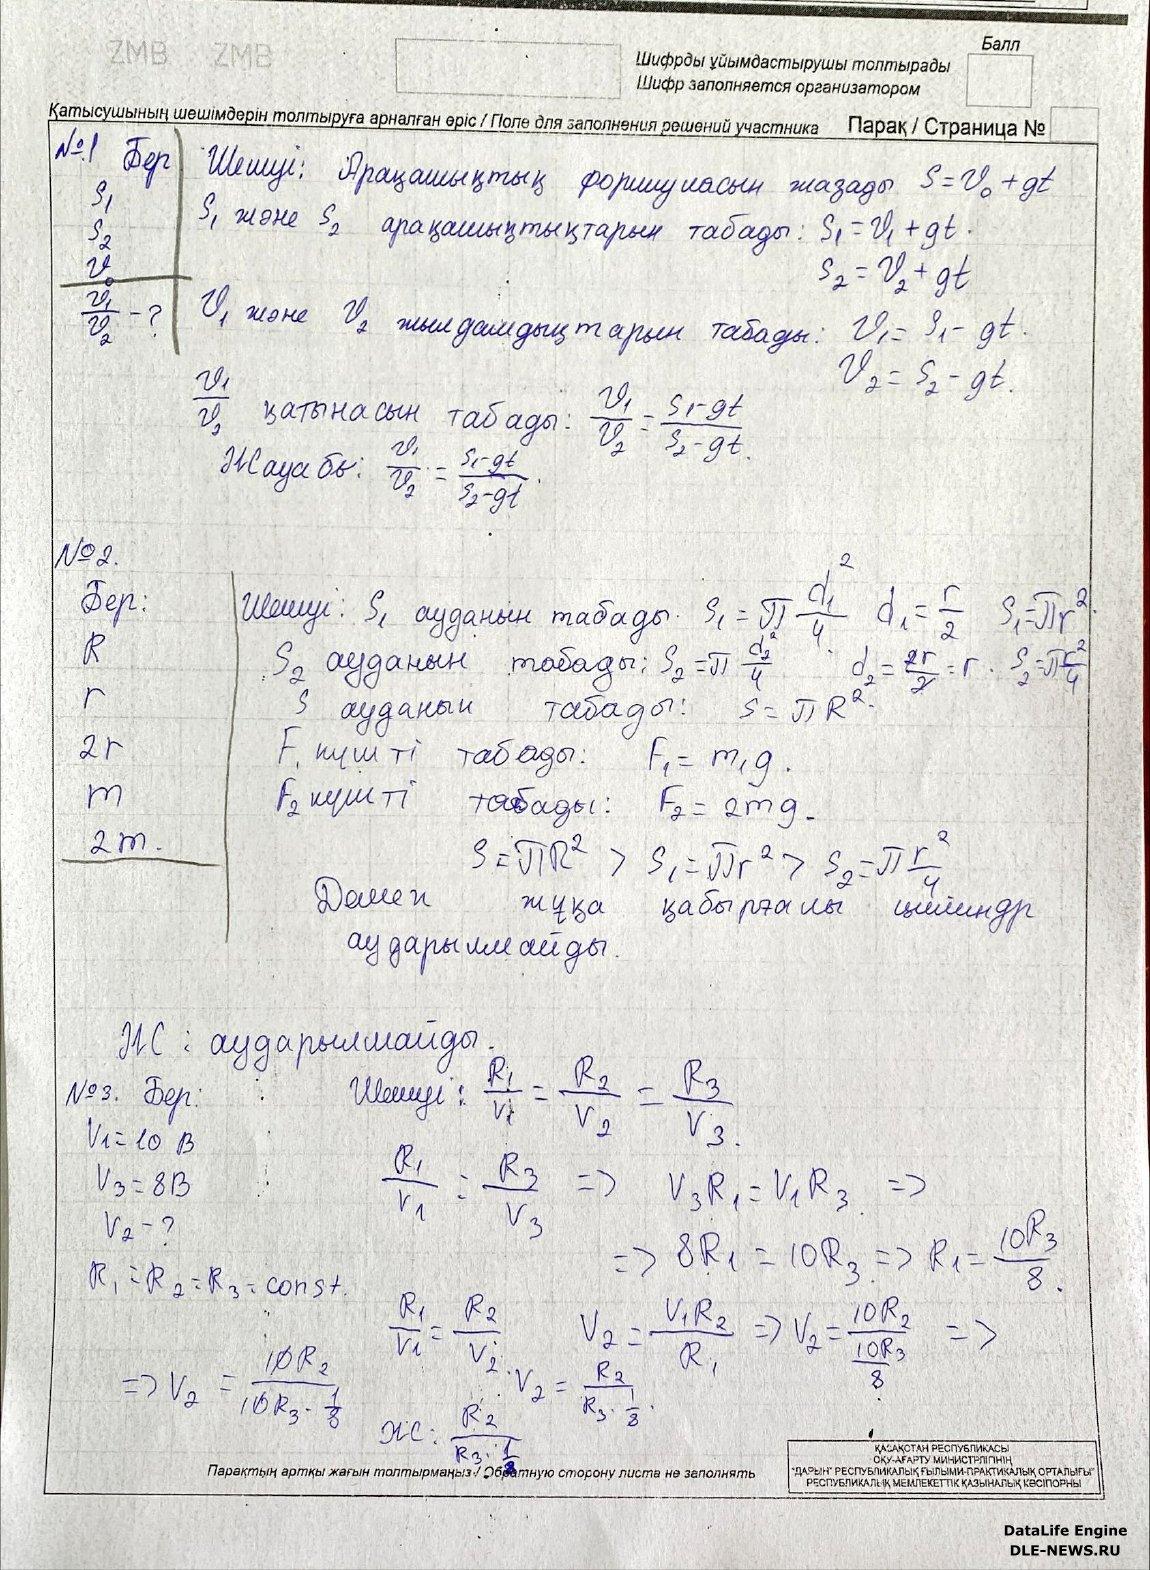 ZMB ZMB
Балл
Шифрды ұйымдастырушы толтырады
Шифр заполняется организатором
Қатысушының шешімдерін толтыруға арналған өріс / Поле для заполнения решений участника Парақ / Страница №
№1 Бер Шешуі: Арақашықтық формуласын жазады S = V₀ + gt
S₁
S₁ және S₂ арақашықтықтарын табады: S₁ = V₁ + gt.
S₂
S₂ = V₂ + gt
V₀
V₁/V₂ - ? V₁ және V₂ жылдамдықтарын табады: V₁ = S₁ - gt.
V₂ = S₂ - gt.
V₁/V₂ қатынасын табады: V₁/V₂ = S₁-gt/S₂-gt.
Жауабы: V₁/V₂ = S₁-gt/S₂-gt.
№2.
Бер: Шешуі: S₁ ауданын табады. S₁ = П d₁²/4 d₁ = r/2 S₁ = Пr².
R S₂ ауданын табады: S₂ = П d₂²/4 d₂ = 2r/2 = r. S₂ = П r²/4
r S ауданын табады: S = ПR².
2r F₁ күшті табады: F₁ = m₁g.
m F₂ күшті табады: F₂ = 2mg.
2m.
S = ПR² > S₁ = Пr² > S₂ = П r²/4
Демек жұқа қабырғалы цилиндр
аударылмайды.
ЖС: аударылмайды.
№3. Бер: Шешуі: R₁/V₁ = R₂/V₂ = R₃/V₃.
V₁ = 10 В
V₃ = 8В R₁/V₁ = R₃/V₃ => V₃R₁ = V₁R₃ =>
V₂ - ?
=> 8R₁ = 10R₃ => R₁ = 10R₃/8.
R₁ = R₂ = R₃ = const.
R₁/V₁ = R₂/V₂. V₂ = V₁R₂/R₁ => V₂ = 10R₂/10R₃/8 =>
=> V₂ = 10R₂/10R₃ · 1/8 V₂ = R₂/R₃ · 1/8.
ЖС: R₂/R₃ · 1/8
Парақтың артқы жағын толтырмаңыз / Обратную сторону листа не заполнять
ҚАЗАҚСТАН РЕСПУБЛИКАСЫ
ОҚУ-АҒАРТУ МИНИСТРЛІГІНІҢ
"ДАРЫН" РЕСПУБЛИКАЛЫҚ ҒЫЛЫМИ-ПРАКТИКАЛЫҚ ОРТАЛЫҒЫ"
РЕСПУБЛИКАЛЫҚ МЕМЛЕКЕТТІК ҚАЗЫНАЛЫҚ КӘСІПОРНЫ
DataLife Engine
DLE-NEWS.RU